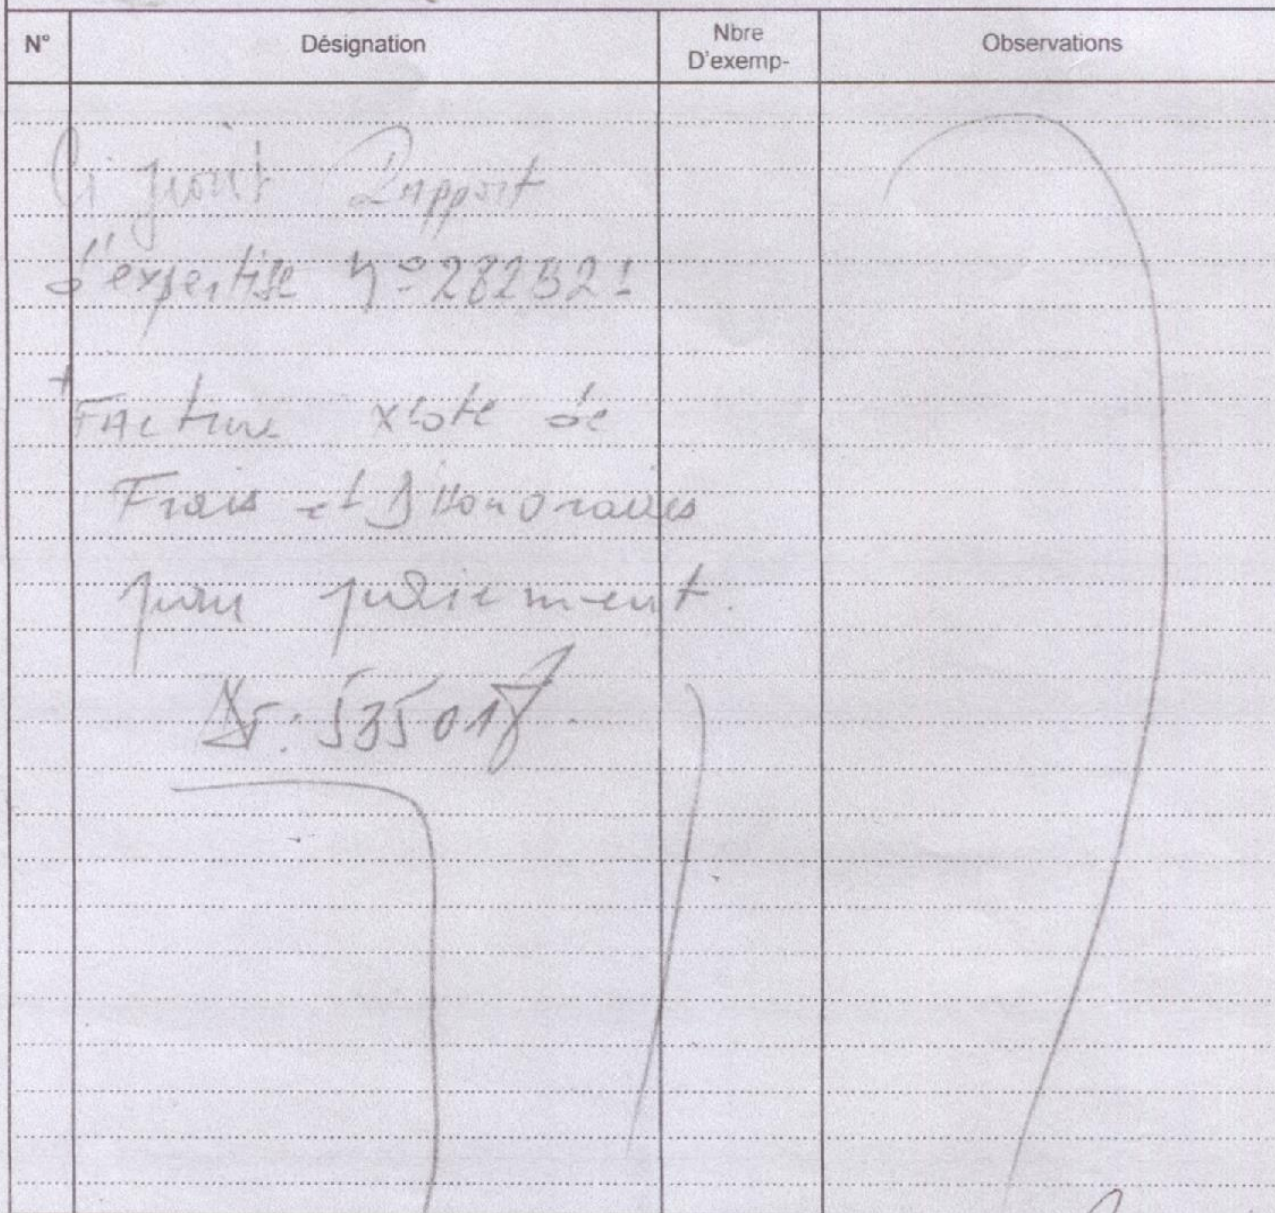 N° Désignation Nbre D'exemp- Observations
Ci joint Rapport
d'expertise N°282521
+
Facture Note de
Frais et D'Honoraires
pour paiement.
535017